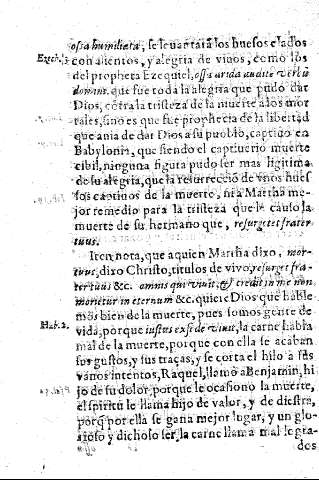 ossa humiliata, se leuantarā los huesos elados
Ezech. con alientos, y alegria de viuos, como los
del propheta Ezequiel, ossa arida audite verbū
domini. que fue toda la alegria que pudo dar
Dios, cōtra la tristeza de la muerte a los mor
tales, sino es que fue prophecia de la libertad
que auia de dar Dios a su pueblo, captiuo en
Babylonia, que siendo el captiuerio muerte
cibil, ninguna figura pudo ser mas ligitima
de su alegria, que la resurrecciō de vnos hues
sos captiuos de la muerte, ni a Martha me-
jor remedio para la tristeza que le causo la
muerte de su hermano que, resurget frater
tuus.
Iten nota, que a quien Martha dixo, mor-
tuus, dixo Christo, titulos de viuo, resurget fra-
ter tuus &c. omnis qui viuit, & credit in me non
morietur in eternum &c. quiere Dios que hable
mos bien de la muerte, pues somos gente de
Hab. 2. vida, porque iustus ex fide viuit, la carne habla
mal de la muerte, porque con ella se acaban
sus gustos, y sus traças, y se corta el hilo a sus
vanos intentos, Raquel, llamò a Benjamin, hi
jo de su dolor, porque le ocasionò la muerte,
el spiritu le llama hijo de valor, y de diestra,
porq̄ por ella se gana mejor lugar, y un glo-
rioso y dichoso ser, la carne llama mal logra-
dos